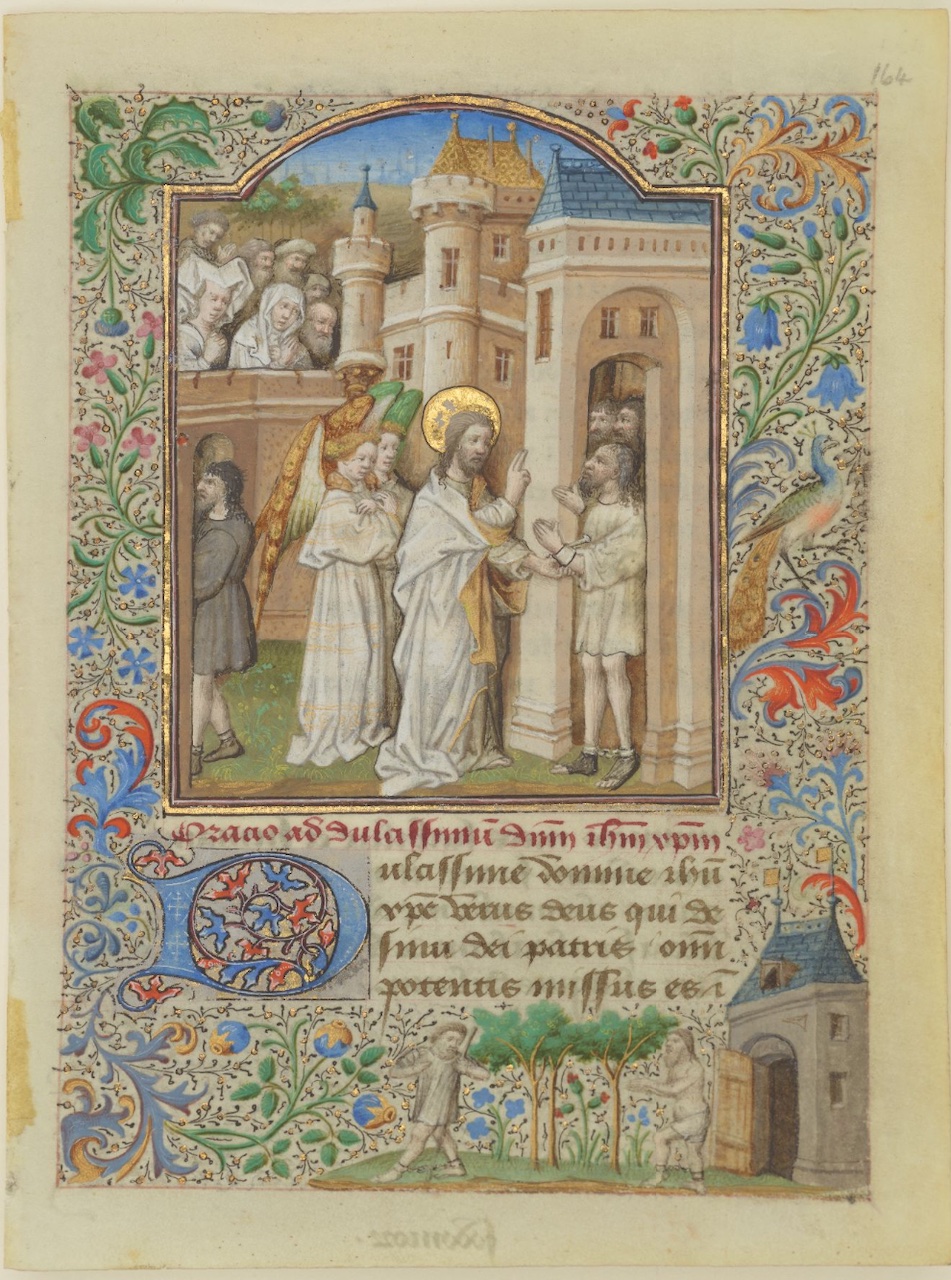 164
Oracio ad dulcissimū dn̄m ih̄m xp̄m
Dulcissime domine ihū
xp̄e verus deus qui de
sinu dei patris om̄i
potentis missus es ī